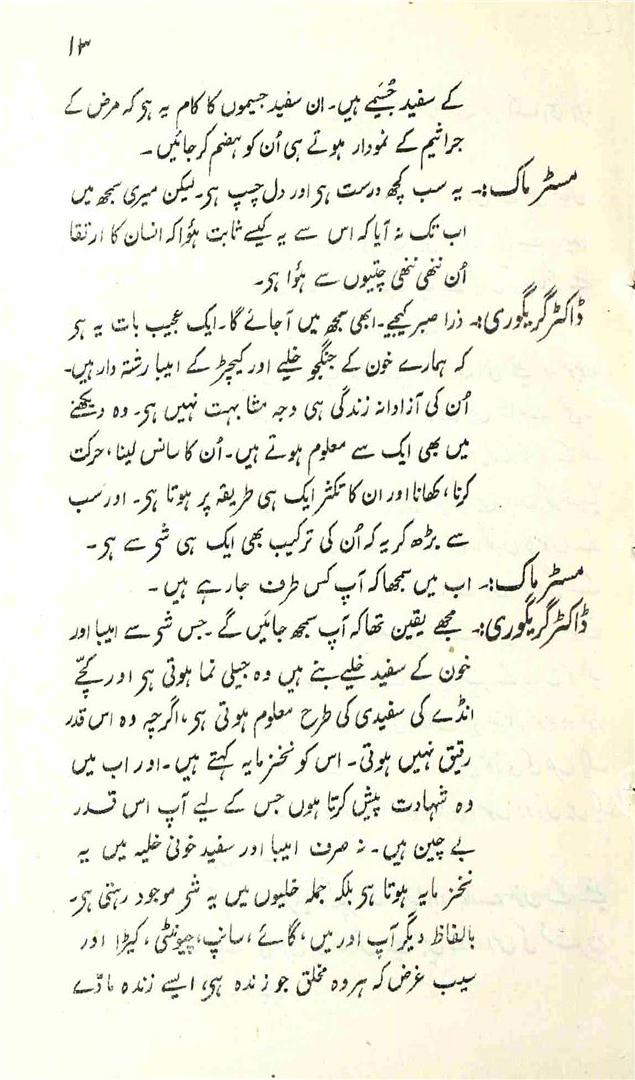 ۱۳
کے سفید جُسَیمے ہیں۔ ان سفید جسیموں کا کام یہ ہی کہ مرض کے
جراثیم کے نمودار ہوتے ہی اُن کو ہضم کر جائیں۔
مسٹر ماک:۔ یہ سب کچھ درست ہی اور دل چسپ ہی۔ لیکن میری سمجھ میں
اب تک نہ آیا کہ اس سے یہ کیسے ثابت ہؤا کہ انسان کا ارتقا
اُن ننھی ننھی چتیوں سے ہؤا ہی۔
ڈاکٹر گریگوری:۔ ذرا صبر کیجیے۔ ابھی سمجھ میں آجائے گا۔ ایک عجیب بات یہ ہی
کہ ہمارے خون کے جنگجو خلیے اور کیچڑ کے امیبا رشتہ دار ہیں۔
اُن کی آزادانہ زندگی ہی وجہ مشابہت نہیں ہی۔ وہ دیکھنے
میں بھی ایک سے معلوم ہوتے ہیں۔ اُن کا سانس لینا، حرکت
کرنا، کھانا اور ان کا تکثر ایک ہی طریقہ پر ہوتا ہی۔ اور سب
سے بڑھ کر یہ کہ اُن کی ترکیب بھی ایک ہی شی سے ہی۔
مسٹر ماک:۔ اب میں سمجھا کہ آپ کس طرف جا رہے ہیں۔
ڈاکٹر گریگوری:۔ مجھے یقین تھا کہ آپ سمجھ جائیں گے۔ جس شی سے امیبا اور
خون کے سفید خلیے بنے ہیں وہ جیلی نما ہوتی ہی اور کچّے
انڈے کی سفیدی کی طرح معلوم ہوتی ہی، اگرچہ وہ اس قدر
رقیق نہیں ہوتی۔ اس کو نخزمایہ کہتے ہیں۔ اور اب میں
وہ شہادت پیش کرتا ہوں جس کے لیے آپ اس قدر
بے چین ہیں۔ نہ صرف امیبا اور سفید خونی خلیہ میں یہ
نخزمایہ ہوتا ہی بلکہ جملہ خلیوں میں یہ شی موجود رہتی ہی۔
بالفاظ دیگر آپ اور میں، گائے، سانپ، چیونٹی، کیڑا اور
سیب غرض کہ ہر وہ مخلق جو زندہ ہی، ایسے زندہ مادّے